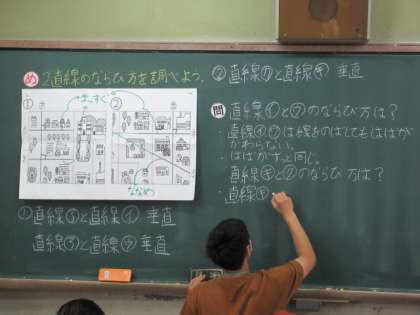 め 2直線のならび方を調べよう。
① まっすぐ ②
ななめ
①直線㋐と直線㋑ 垂直
直線㋒と直線 垂直
②直線と直線 垂直
問 直線㋑と㋒のならび方は?
・直線㋑㋒は線をのばしてもはばがかわらない。
・はばがずっと同じ。
直線とのならび方は?
・直線